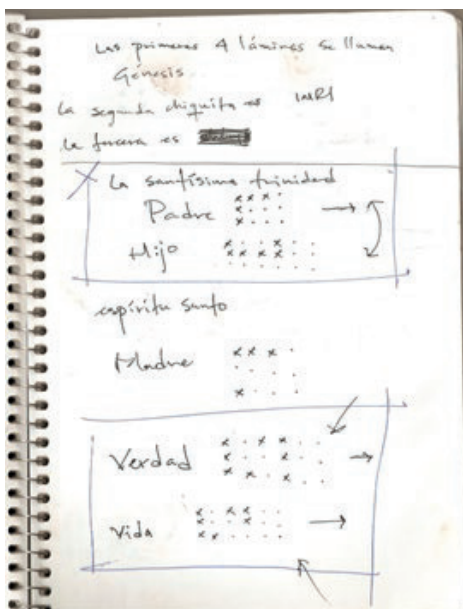 Las primeras 4 láminas se llaman
Génesis
La segunda chiquita es INRI
la tercera es
La santísima trinidad
Padre
Hijo
espíritu santo
Madre
Verdad
Vida